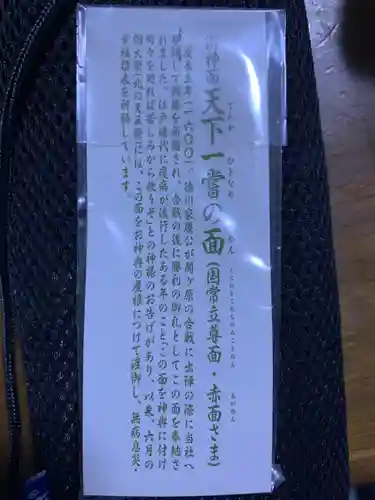 御神面 天下一嘗の面(国常立尊面・赤面さま)
てんか ひとなめ めん くにのとこたちのみことめん あかめん
慶長五年(一六〇〇)、徳川家康公が関ヶ原の合戦に出陣の際に当社へ
参拝して戦勝を祈願され、合戦の後に勝利の御礼としてこの面を奉納さ
れました。江戸時代に疫病が流行したある年のこと、「この面を神輿に付け
町々を廻れば苦しみから救うぞ」との神様のお告げがあり、以来、六月の
例大祭(北の天王祭)には、この面をお神輿の屋根につけて渡御し、無病息災・
幸福招来を祈願しています。